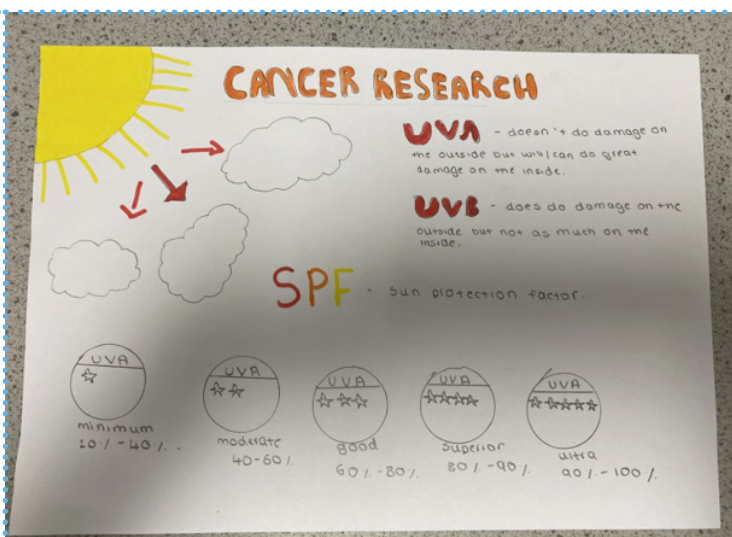 CANCER RESEARCH
UVA - doesn't do damage on
the outside but will/can do great
damage on the inside.
UVB - does do damage on the
outside but not as much on the
inside.
SPF - sun protection factor.
UVA
minimum
10% - 40%.
UVA
moderate
40-60%
UVA
good
60% - 80%
UVA
superior
80% - 90%
UVA
ultra
90% - 100%